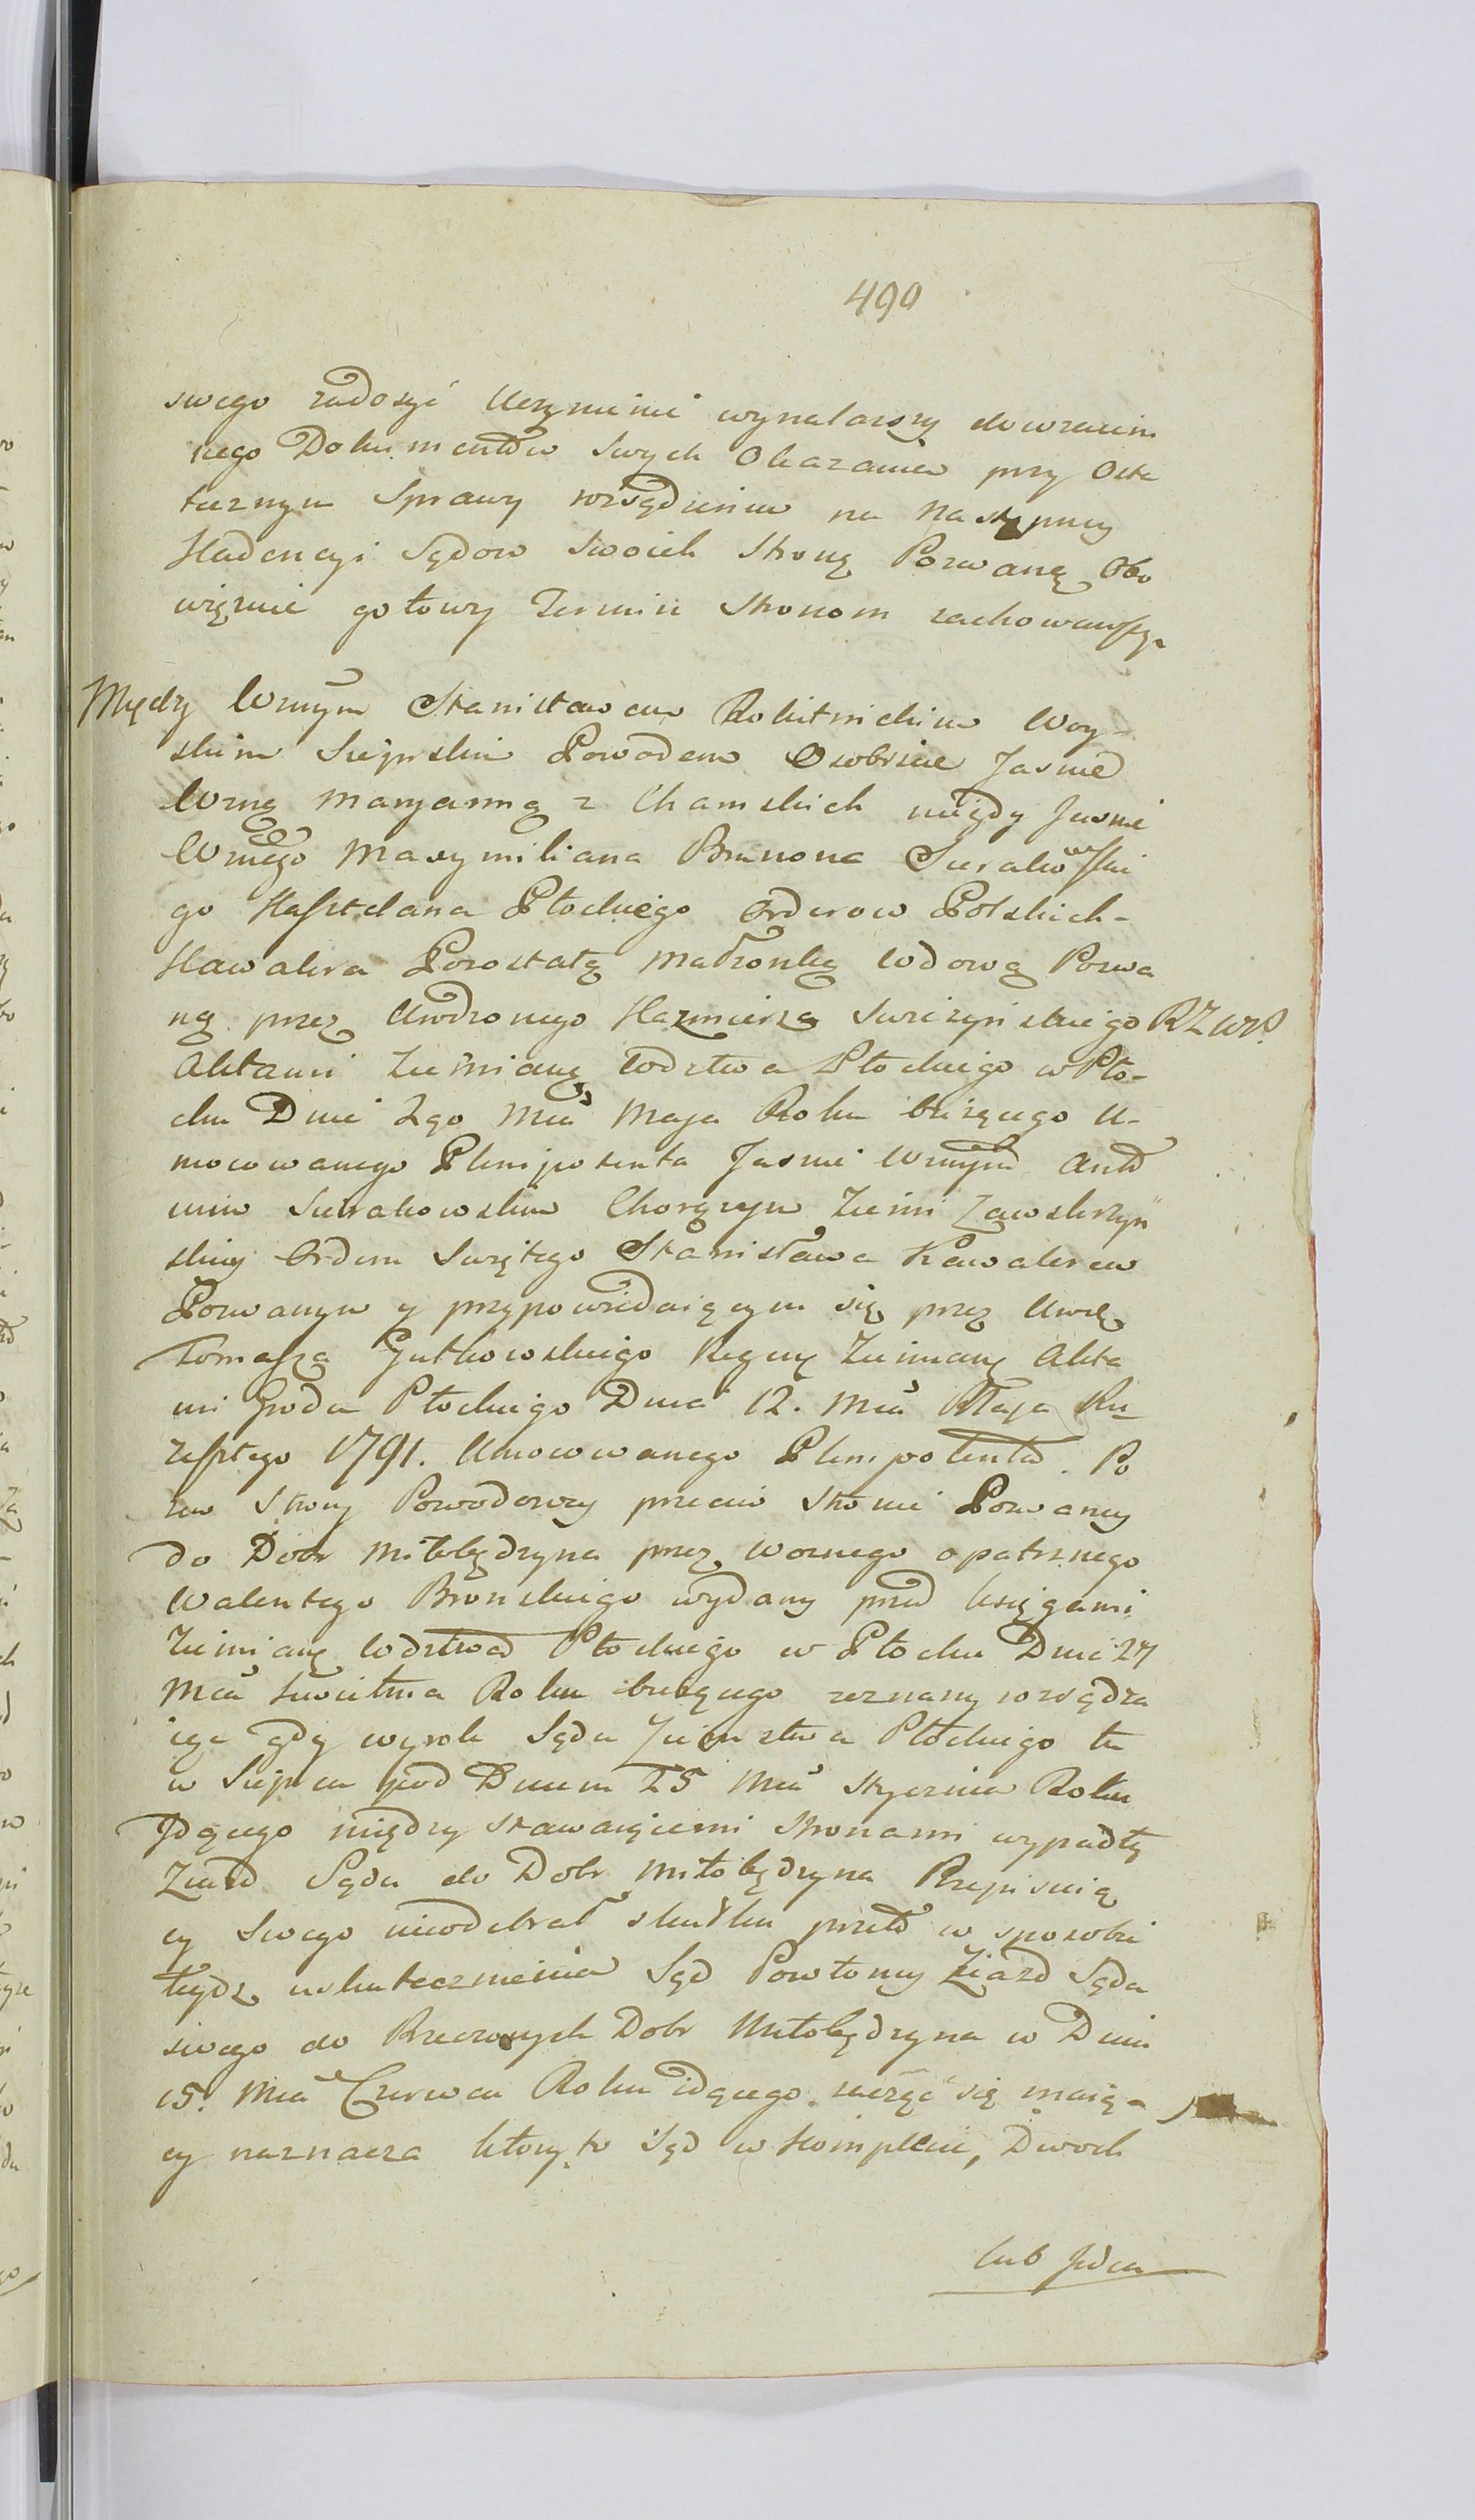 490
swego zadosyć uczynienie wynalazszy do wzaiem
nego Dokumentow swych Okazania przy Osta
tecznym Sprawy rozsądzeniu na Następney
Kadencyi Sądow swoich Stronę Pozwaną Obo
wiązuie gotowy Termin Stronom zachowawszy.
Między Wnym Stanisławem Rokitnickim Woy-
skim Sierpskim Powodem Osobiście Jasnie
Wzną Maryanną z Chamskich niegdy Jasnie
Wznego Maxymiliana Brunona Sierakowski
go Kasztelana Płockiego Orderow Polskich
Kawalera Pozostałą Małżonką Wdową Pozwa
ną przez Urodzonego Kazmierza Swieżynskiego RZWP.
Aktami Ziemianę Wodztwa Płockiego w Pło-
cku Dnia 2go Mca Maja Roku bieżącego U-
mocowanego Plenipotenta Jasnie Wnym Anto
nim Sierakowskim Chorążym Ziemi Zawskrzyn
skiey Orderu Swiętego Stanisława Kawalerem
Pozwanym y przypowiedaiącym się przez Urod
Tomasza Gutkowskiego Regenta Ziemiany Akta
mi Grodu Płockiego Dnia 12. Mca Maja Ru
zesztego 1791. Umocowanego Plenipotenta. Po
zew Strony Powodowey przeciw Stronie Pozwaney
do Dobr Miłobędzyna przez Woznego opatrznego
Walentego Bronskiego wydany przed Księgami
Ziemianę Wodztwa Płockiego w Płocku Dnia 27
Mca Kwietnia Roku bieżącego zeznany rozsądza
iąc gdy wyrok Sądu Ziemstwa Płockiego tu
w Sierpcu pod Dniem 25 Mca Stycznia Roku
Idącego między stawaiącemi Stronami wypadły
Ziazd Sądu do Dobr Miłobędzyna Przepisuią
cy Swego nieodebrał skutku przeto w sposobie
tegoż uskutecznienia Sąd Powtorny Ziazd Sądu
swego do Rzeczonych Dobr Miłobędzyna w Dniu
15. Mca Czerwca Roku idącego zacząć się maią-
cy naznacza ktory to Sąd w Komplecie, Dwoch
lub Jeden